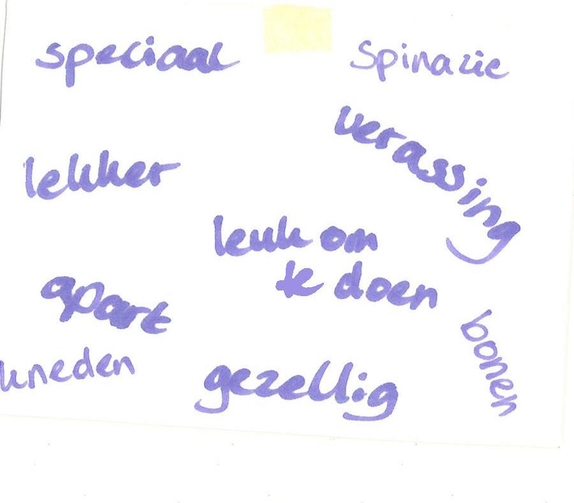 speciaal
spinazie
verassing
lekker
leuk om
te doen
apart
bonen
kneden
gezellig